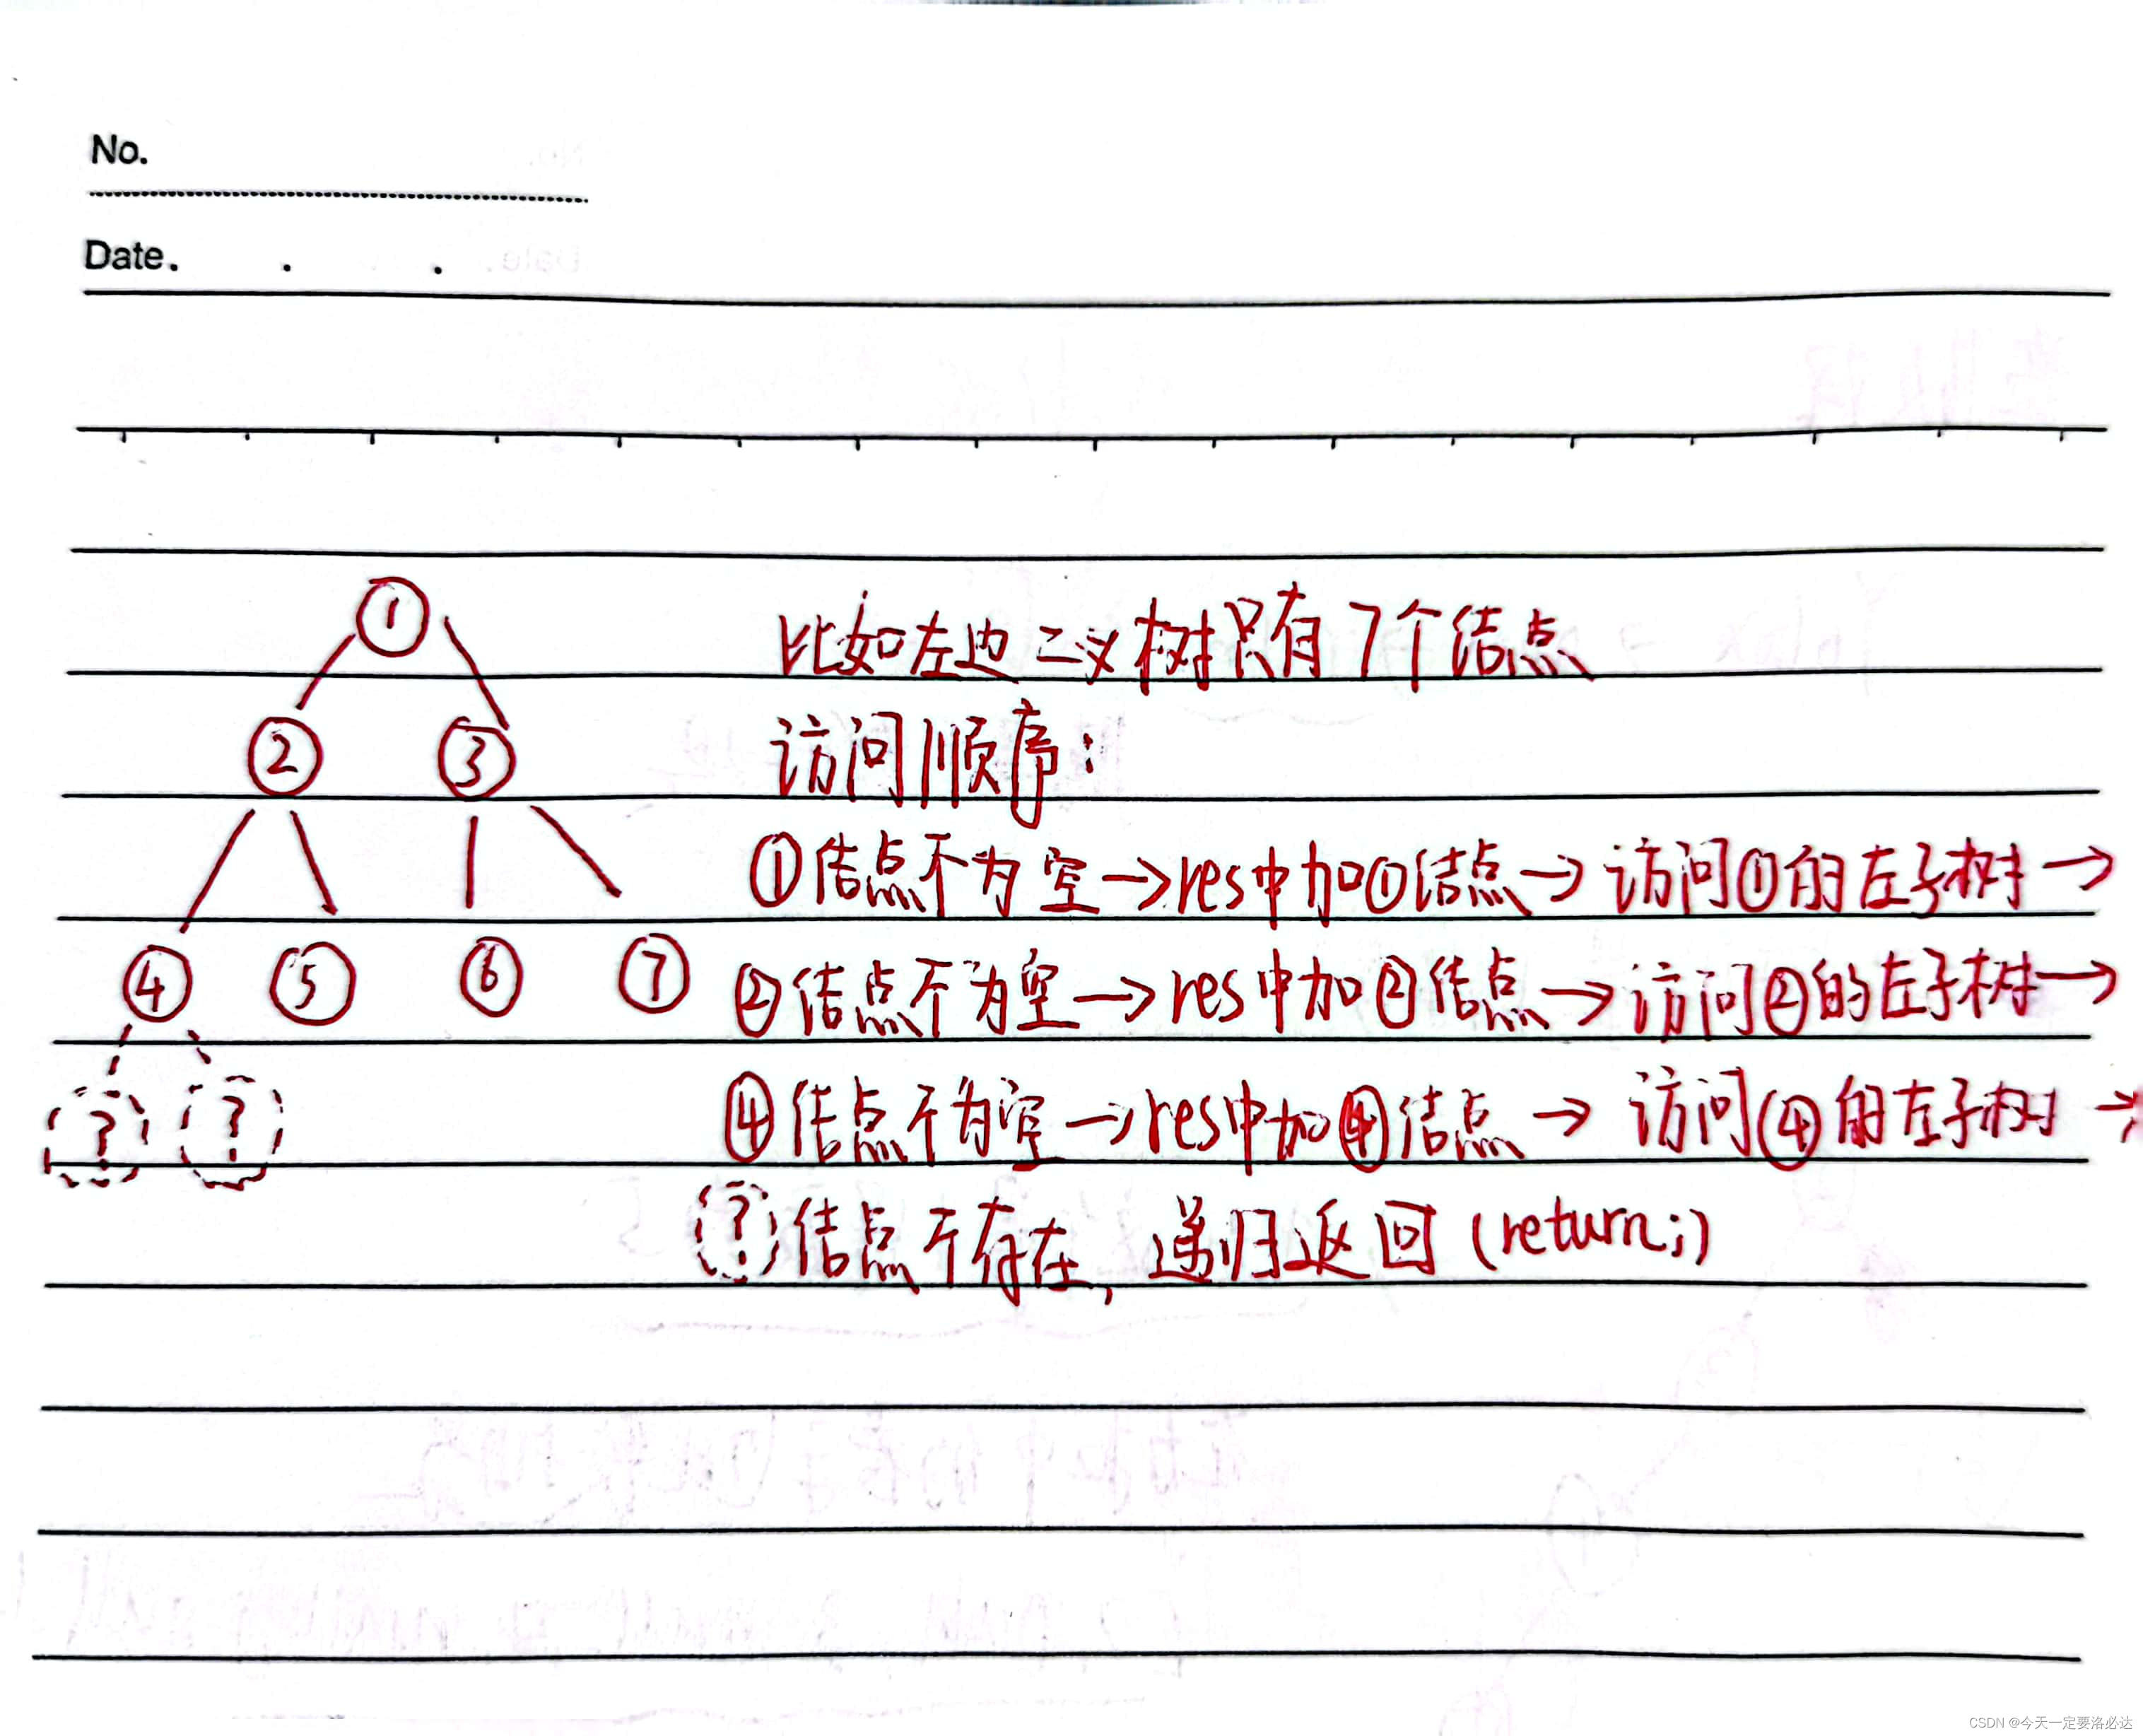 No.
Date. . .
①
比如左边二叉树只有7个结点
② ③
访问顺序:
①结点不为空→res中加①结点→访问①的左子树→
④ ⑤ ⑥ ⑦
②结点不为空→res中加②结点→访问②的左子树→
? ?
④结点不为空→res中加④结点→访问④的左子树→
?结点不存在,递归返回(return;)
CSDN @今天一定要洛必达